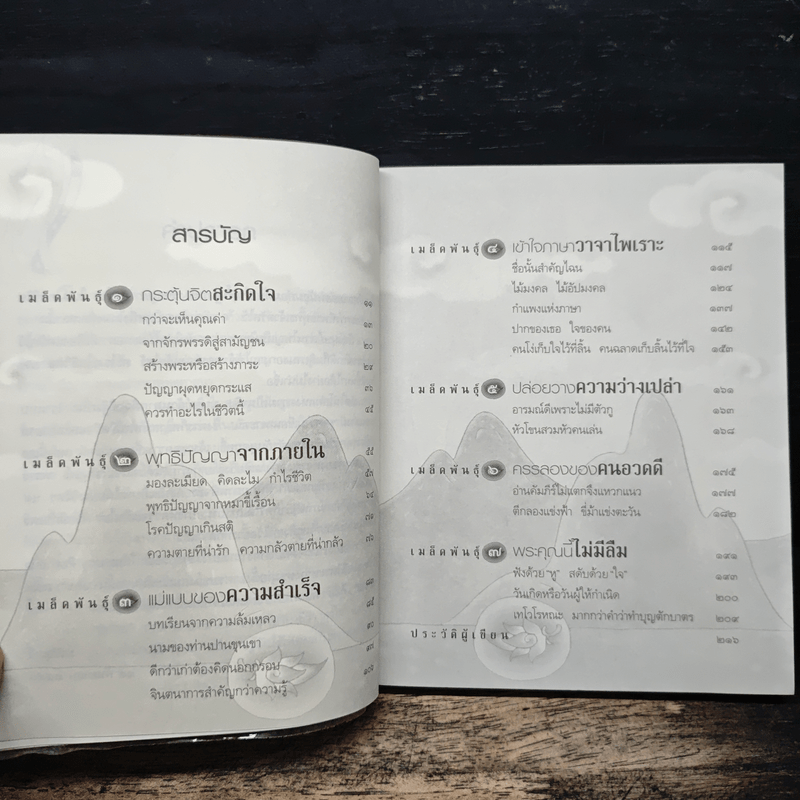 สารบัญ
เมล็ดพันธุ์ ๑ กระตุ้นจิตสะกิดใจ ๑๑
กว่าจะเห็นคุณค่า ๑๓
จากจักรพรรดิสู่สามัญชน ๒๐
สร้างพระหรือสร้างภาระ ๒๙
ปัญญาผุดหยุดกระแส ๓๖
ควรทำอะไรในชีวิตนี้ ๔๕
เมล็ดพันธุ์ ๒ พุทธิปัญญาจากภายใน ๕๕
มองละเมียด คิดละไม กำไรชีวิต ๕๗
พุทธิปัญญาจากหมาขี้เรื้อน ๖๔
โรคปัญญาเกินสติ ๗๑
ความตายที่น่ารัก ความกลัวตายที่น่ากลัว ๗๖
เมล็ดพันธุ์ ๓ แม่แบบของความสำเร็จ
บทเรียนจากความล้มเหลว
นามของท่านปานขุนเขา
ดีกว่าเก่าต้องคิดนอกกรอบ
จินตนาการสำคัญกว่าความรู้
เมล็ดพันธุ์ ๔ เข้าใจภาษาวาจาไพเราะ ๑๑๕
ชื่อนั้นสำคัญไฉน ๑๑๗
ไม้มงคล ไม้อัปมงคล ๑๒๔
กำแพงแห่งภาษา ๑๓๗
ปากของเธอ ใจของคน ๑๔๒
คนโง่เก็บใจไว้ที่ลิ้น คนฉลาดเก็บลิ้นไว้ที่ใจ ๑๕๓
เมล็ดพันธุ์ ๕ ปล่อยวางความว่างเปล่า ๑๖๑
อารมณ์ดีเพราะไม่มีตัวกู ๑๖๓
หัวโขนสวมหัวคนเล่น ๑๖๘
เมล็ดพันธุ์ ๖ ครรลองของคนอวดดี ๑๗๕
อ่านคัมภีร์ไม่แตกจึงแหวกแนว ๑๗๗
ตีกลองแข่งฟ้า ขี่ม้าแข่งตะวัน ๑๘๒
เมล็ดพันธุ์ ๗ พระคุณนี้ไม่มีลืม ๑๙๑
ฟังด้วย "หู" สดับด้วย "ใจ" ๑๙๓
วันเกิดหรือวันผู้ให้กำเนิด ๒๐๐
เทโวโรหณะ มากกว่าคำว่าทำบุญตักบาตร ๒๐๙
ประวัติผู้เขียน ๒๑๖